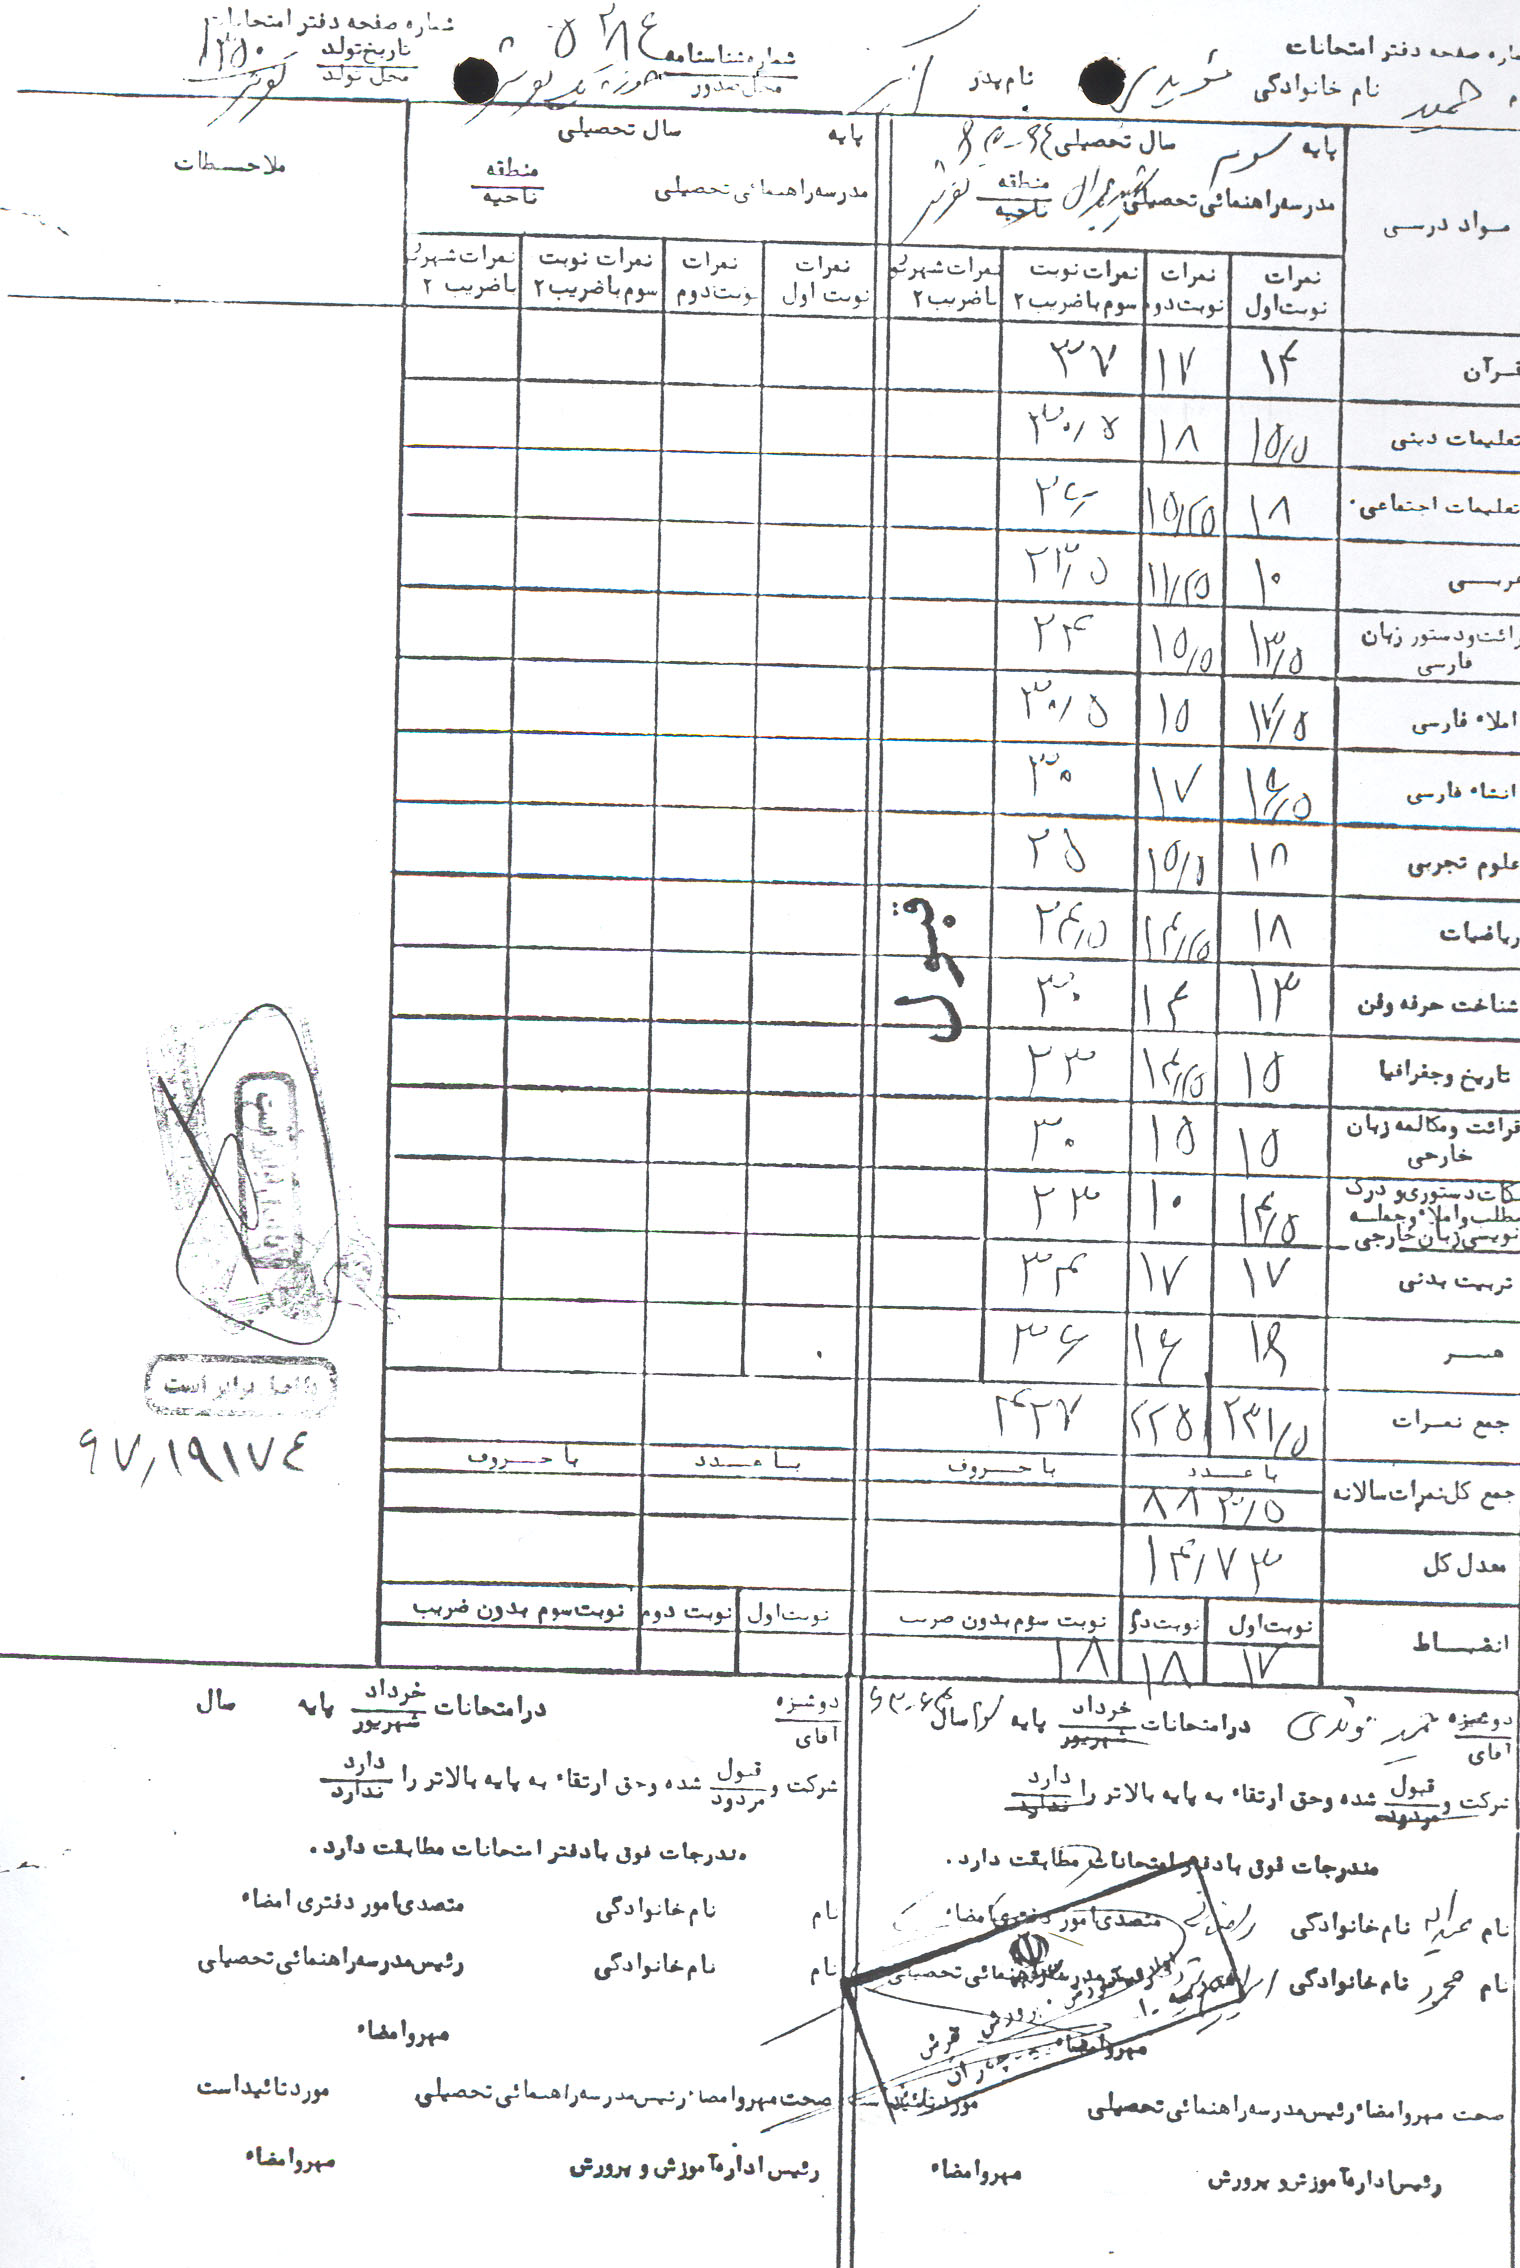 شماره صفحه دفتر امتحانات
نام خانوادگی
نام پدر
شماره شناسنامه ۵۲۸۶
محل صدور
شماره صفحه دفتر امتحانات
تاریخ تولد ۱۳۵۰
محل تولد تفرش
مواد درسی
پایه سوم سال تحصیلی
مدرسه راهنمائی تحصیلی منطقه ناحیه تفرش
پایه سال تحصیلی
مدرسه راهنمائی تحصیلی منطقه ناحیه
ملاحظات
نمرات نوبت اول نمرات نوبت دوم نمرات نوبت سوم با ضریب ۲ نمرات شهریور با ضریب ۲
نمرات نوبت اول نمرات نوبت دوم نمرات نوبت سوم با ضریب ۲ نمرات شهریور با ضریب ۲
قرآن ۱۴ ۱۷ ۳۷
تعلیمات دینی ۱۵/۵ ۱۸ ۳۰/۵
تعلیمات اجتماعی ۱۸ ۱۵/۲۵ ۳۶
عربی ۱۰ ۱۱/۲۵ ۲۳/۵
قرائت و دستور زبان فارسی ۱۳/۵ ۱۵/۵ ۲۴
املاء فارسی ۱۷/۵ ۱۵ ۳۰/۵
انشاء فارسی ۱۶/۵ ۱۷ ۳۰
علوم تجربی ۱۸ ۱۵/۵ ۲۵
ریاضیات ۱۸ ۱۴/۲۵ ۲۴/۵
شناخت حرفه و فن ۱۳ ۱۴ ۳۰
تاریخ و جغرافیا ۱۵ ۱۴/۲۵ ۲۳
قرائت و مکالمه زبان خارجی ۱۵ ۱۵ ۳۰
نکات دستوری و درک مطلب و املاء و جمله نویسی زبان خارجی ۱۴/۵ ۱۰ ۲۳
تربیت بدنی ۱۷ ۱۷ ۳۴
هنر ۱۶ ۱۶ ۳۶
قبول
جمع نمرات ۲۳۱/۵ ۲۲۵ ۴۲۷
با عدد با حروف با عدد با حروف
جمع کل نمرات سالانه ۸۸۳/۵
معدل کل ۱۴/۷۳
انضباط نوبت اول نوبت دوم نوبت سوم بدون ضریب نوبت اول نوبت دوم نوبت سوم بدون ضریب
۱۷ ۱۸ ۱۸
با اصل برابر است
۹۷/۱۹۱۷۴
دوشیزه آقای در امتحانات خرداد شهریور پایه سال
شرکت و قبول مردود شده و حق ارتقاء به پایه بالاتر را دارد ندارد
مندرجات فوق با دفتر امتحانات مطابقت دارد.
نام نام خانوادگی متصدی امور دفتری امضاء
نام محمود نام خانوادگی رئیس مدرسه راهنمائی تحصیلی
مهر و امضاء
صحت مهر و امضاء رئیس مدرسه راهنمائی تحصیلی مورد تائید است
رئیس اداره آموزش و پرورش مهر و امضاء
دوشیزه آقای در امتحانات خرداد شهریور پایه سال
شرکت و قبول مردود شده و حق ارتقاء به پایه بالاتر را دارد ندارد
مندرجات فوق با دفتر امتحانات مطابقت دارد.
نام نام خانوادگی متصدی امور دفتری امضاء
نام نام خانوادگی رئیس مدرسه راهنمائی تحصیلی
مهر و امضاء
صحت مهر و امضاء رئیس مدرسه راهنمائی تحصیلی مورد تائید است
رئیس اداره آموزش و پرورش مهر و امضاء